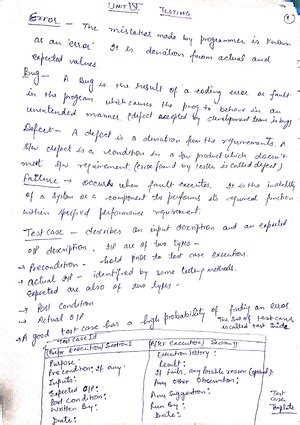 UNIT IV TESTING
Error - The mistakes made by programmer is known
as an 'error'. It is deviation from actual and
expected values.
Bug - A Bug is the result of a coding error or fault
in the program. which causes the prog to behave in an
unintended manner. (defect accepted by development team is bug)
Defect - A defect is a deviation from the requirements. A
S/w defect is a condition in a s/w product which doesn't
meet s/w requirement. (error found by tester is called defect)
Failure - occurs when fault executes. It is the inability
of a system or a component to perform its required function
within specified performance requirement.
Test case - describes an input description and an expected
o/p description. I/P are of two types -
→ Precondition - hold prior to test case execution.
→ actual I/P - identified by some testing methods.
Expected are also of two types -
→ Post Condition
→ Actual O/P
→ A good test case has a high probability of finding an error
The set of test cases
is called test suite
Test case Id
(Prior Execution) Section I (After Execution) Section II
Purpose: Execution History:
Precondition: If any: Result:
Inputs: If fails, any possible reason (optional):
Expected O/P: Any other Observation:
Post Condition: Any Suggestion:
Written By: Run By:
Date: Date:
Test
case
Template